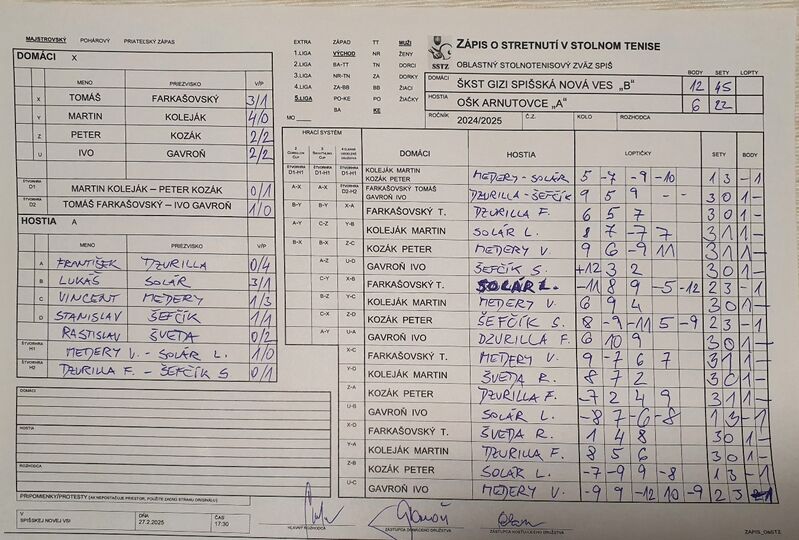 MAJSTROVSKÝ POHÁROVÝ PRIATEĽSKÝ ZÁPAS
DOMÁCI X
MENO PRIEZVISKO V/P
X TOMÁŠ FARKAŠOVSKÝ 3/1
Y MARTIN KOLEJÁK 4/0
Z PETER KOZÁK 2/2
U IVO GAVROŇ 2/2
ŠTVORHRA D1 MARTIN KOLEJÁK – PETER KOZÁK 0/1
ŠTVORHRA D2 TOMÁŠ FARKAŠOVSKÝ – IVO GAVROŇ 1/0
HOSTIA A
MENO PRIEZVISKO V/P
A FRANTIŠEK DZURILLA 0/4
B LUKÁŠ SOLÁR 3/1
C VINCENT MEDERY 1/3
D STANISLAV ŠEFČÍK 1/1
RASTISLAV ŠVEDA 0/2
ŠTVORHRA H1 MEDERY V. - SOLÁR L. 1/0
ŠTVORHRA H2 DZURILLA F. - ŠEFČÍK S 0/1
DOMÁCI
HOSTIA
ROZHODCA
PRIPOMIENKY/PROTESTY (AK NEPOSTAČUJE PRIESTOR, POUŽITE ZADNÚ STRANU ORIGINÁLU)
V SPIŠSKEJ NOVEJ VSI
DŇA 27.2.2025
ČAS 17:30
HLAVNÝ ROZHODCA
ZÁSTUPCA DOMÁCEHO DRUŽSTVA
ZÁSTUPCA HOSŤUJÚCEHO DRUŽSTVA
ZAPIS_OSSTZ
EXTRA ZÁPAD TT MUŽI
1.LIGA VÝCHOD NR ŽENY
2.LIGA BA-TT TN DORCI
3.LIGA NR-TN ZA DORKY
4.LIGA ZA-BB BB ŽIACI
5.LIGA PO-KE PO ŽIAČKY
MO BA KE
SSTZ
ZÁPIS O STRETNUTÍ V STOLNOM TENISE
OBLASTNÝ STOLNOTENISOVÝ ZVÄZ SPIŠ
BODY SETY LOPTY
DOMÁCI ŠKST GIZI SPIŠSKÁ NOVÁ VES „B" 12 45
HOSTIA OŠK ARNUTOVCE „A" 6 22
ROČNÍK 2024/2025 Č.Z. KOLO ROZHODCA
HRACÍ SYSTÉM
DOMÁCI HOSTIA LOPTIČKY SETY BODY
ŠTVORHRA D1-H1 ŠTVORHRA D1-H1 ŠTVORHRA D1-H1 KOLEJÁK MARTIN KOZÁK PETER MEDERY - SOLÁR 5 -7 -9 -10 1 3 - 1
A-X A-X ŠTVORHRA D2-H2 FARKAŠOVSKÝ TOMÁŠ GAVROŇ IVO DZURILLA - ŠEFČÍK 9 5 9 - - 3 0 1 -
B-Y B-Y X-A FARKAŠOVSKÝ T. DZURILLA F. 6 5 7 3 0 1 -
A-Y C-Z Y-B KOLEJÁK MARTIN SOLÁR L. 8 7 -7 7 3 1 1 -
B-X B-X Z-C KOZÁK PETER MEDERY V. 9 6 -9 11 3 1 1 -
A-Z U-D GAVROŇ IVO ŠEFČÍK S. +12 3 2 3 0 1 -
C-Y X-B FARKAŠOVSKÝ T. SOLÁR L. -11 8 9 -5 -12 2 3 - 1
B-Z Y-C KOLEJÁK MARTIN MEDERY V. 6 9 4 3 0 1 -
C-X Z-D KOZÁK PETER ŠEFČÍK S. 8 -9 -11 5 -9 2 3 - 1
A-Y U-A GAVROŇ IVO DZURILLA F. 6 10 9 3 0 1 -
X-C FARKAŠOVSKÝ T. MEDERY V. 9 -7 6 7 3 1 1 -
Y-D KOLEJÁK MARTIN ŠVEDA R. 8 7 2 3 0 1 -
Z-A KOZÁK PETER DZURILLA F. -7 2 4 9 3 1 1 -
U-B GAVROŇ IVO SOLÁR L. -8 7 -6 -8 1 3 - 1
X-D FARKAŠOVSKÝ T. ŠVEDA R. 1 4 8 3 0 1 -
Y-A KOLEJÁK MARTIN DZURILLA F. 8 5 6 3 0 1 -
Z-B KOZÁK PETER SOLÁR L. -7 -9 9 -8 1 3 - 1
U-C GAVROŇ IVO MEDERY V. -9 9 -12 10 -9 2 3 - 1